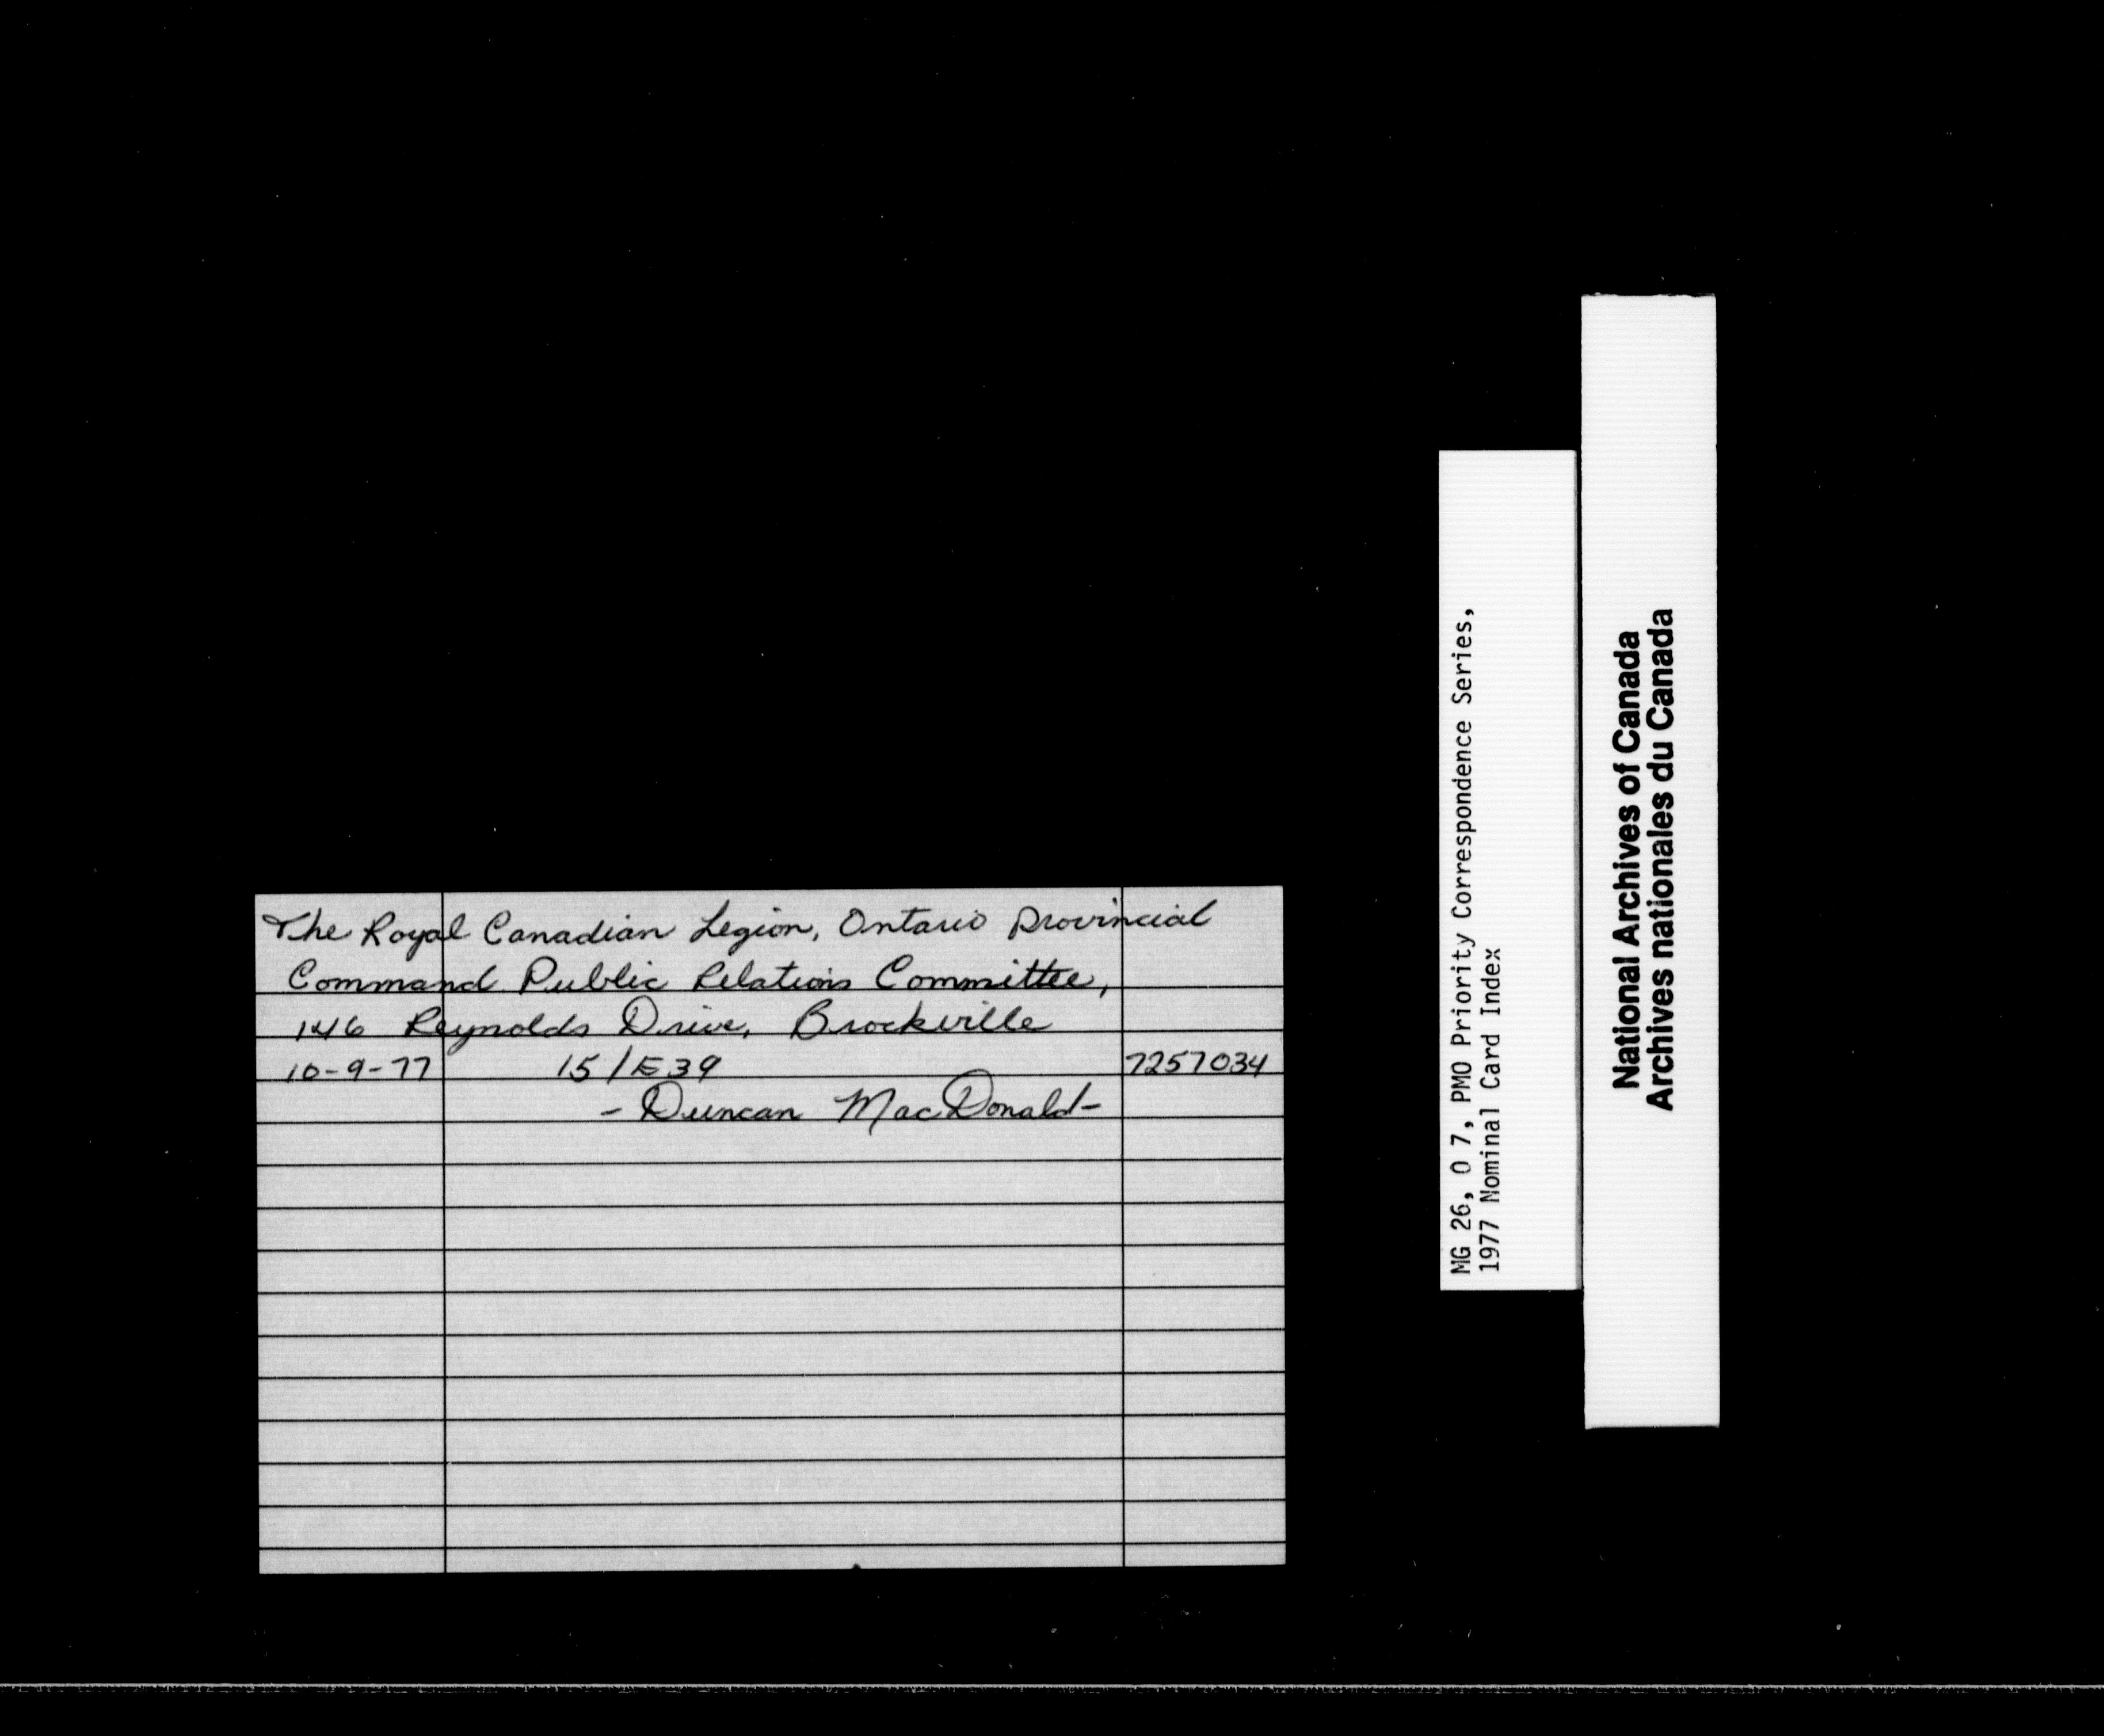 The Royal Canadian Legion, Ontario Provincial
Command Public Relations Committee,
146 Reynolds Drive, Brockville
10-9-77 15/E39 7257034
- Duncan MacDonald-
MG 26, O 7, PMO Priority Correspondence Series,
1977 Nominal Card Index
National Archives of Canada
Archives nationales du Canada